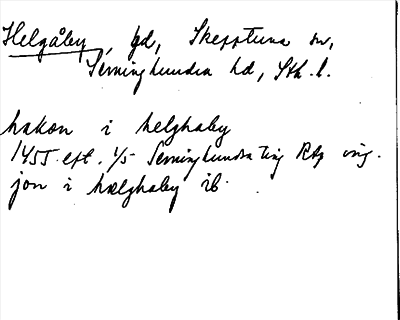 Helgåby, gd, Skepptuna sn,
Seminghundra hd, Sth. l.
hakon i helghaby
1455 eft. 1/5 Seminghundra ting RAp orig.
jon i hælghaby ib.